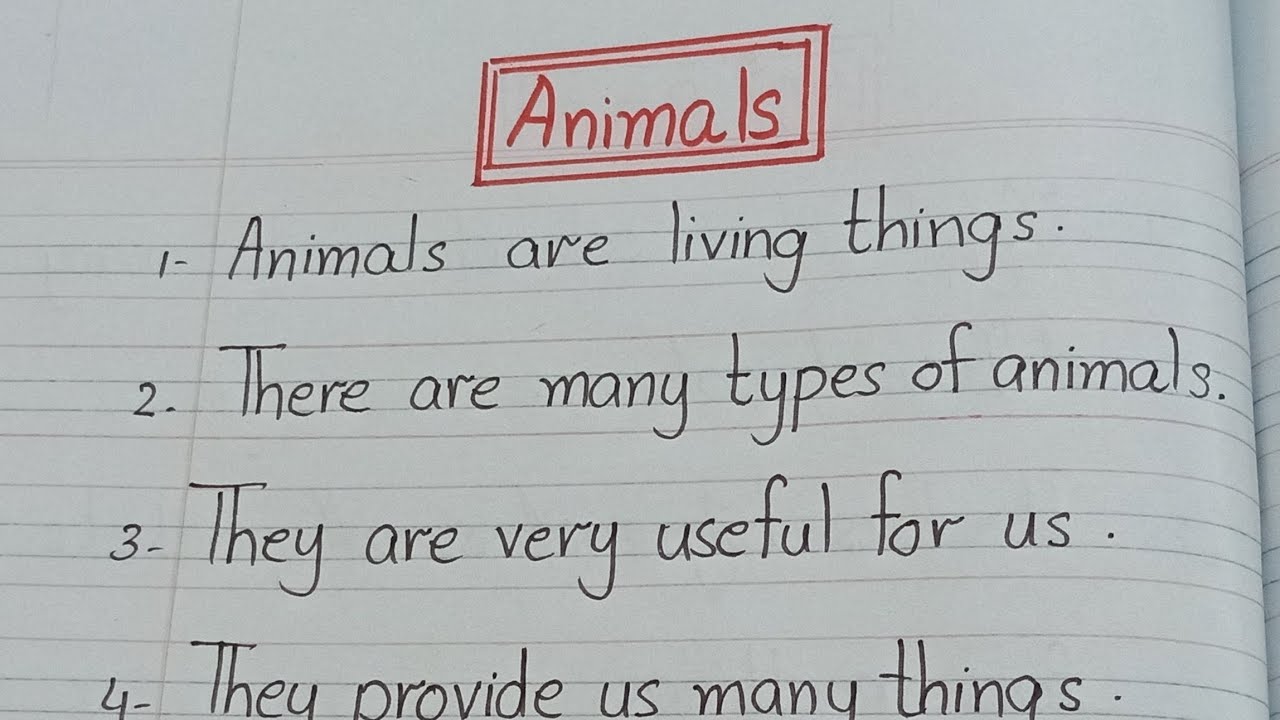 Animals
1- Animals are living things.
2. There are many types of animals.
3- They are very useful for us.
4- They provide us many things.